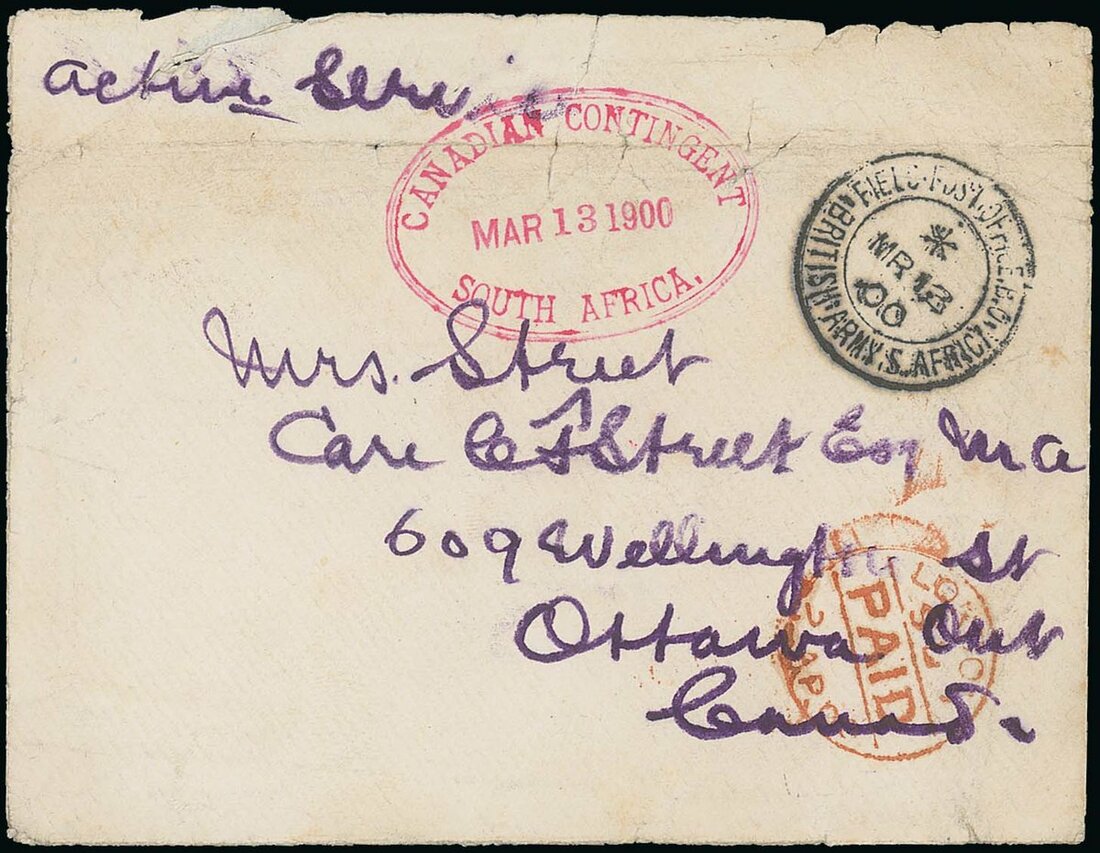 active Service
CANADIAN CONTINGENT
MAR 13 1900
SOUTH AFRICA.
FIELD·POST·OFFICE.B.O·
BRITISH·ARMY.S.AFRICA
MR
00
Mrs. Street
Care C F Street Esq M A
609 Wellington St
Ottawa Ont
Canada
LONDON
PAID